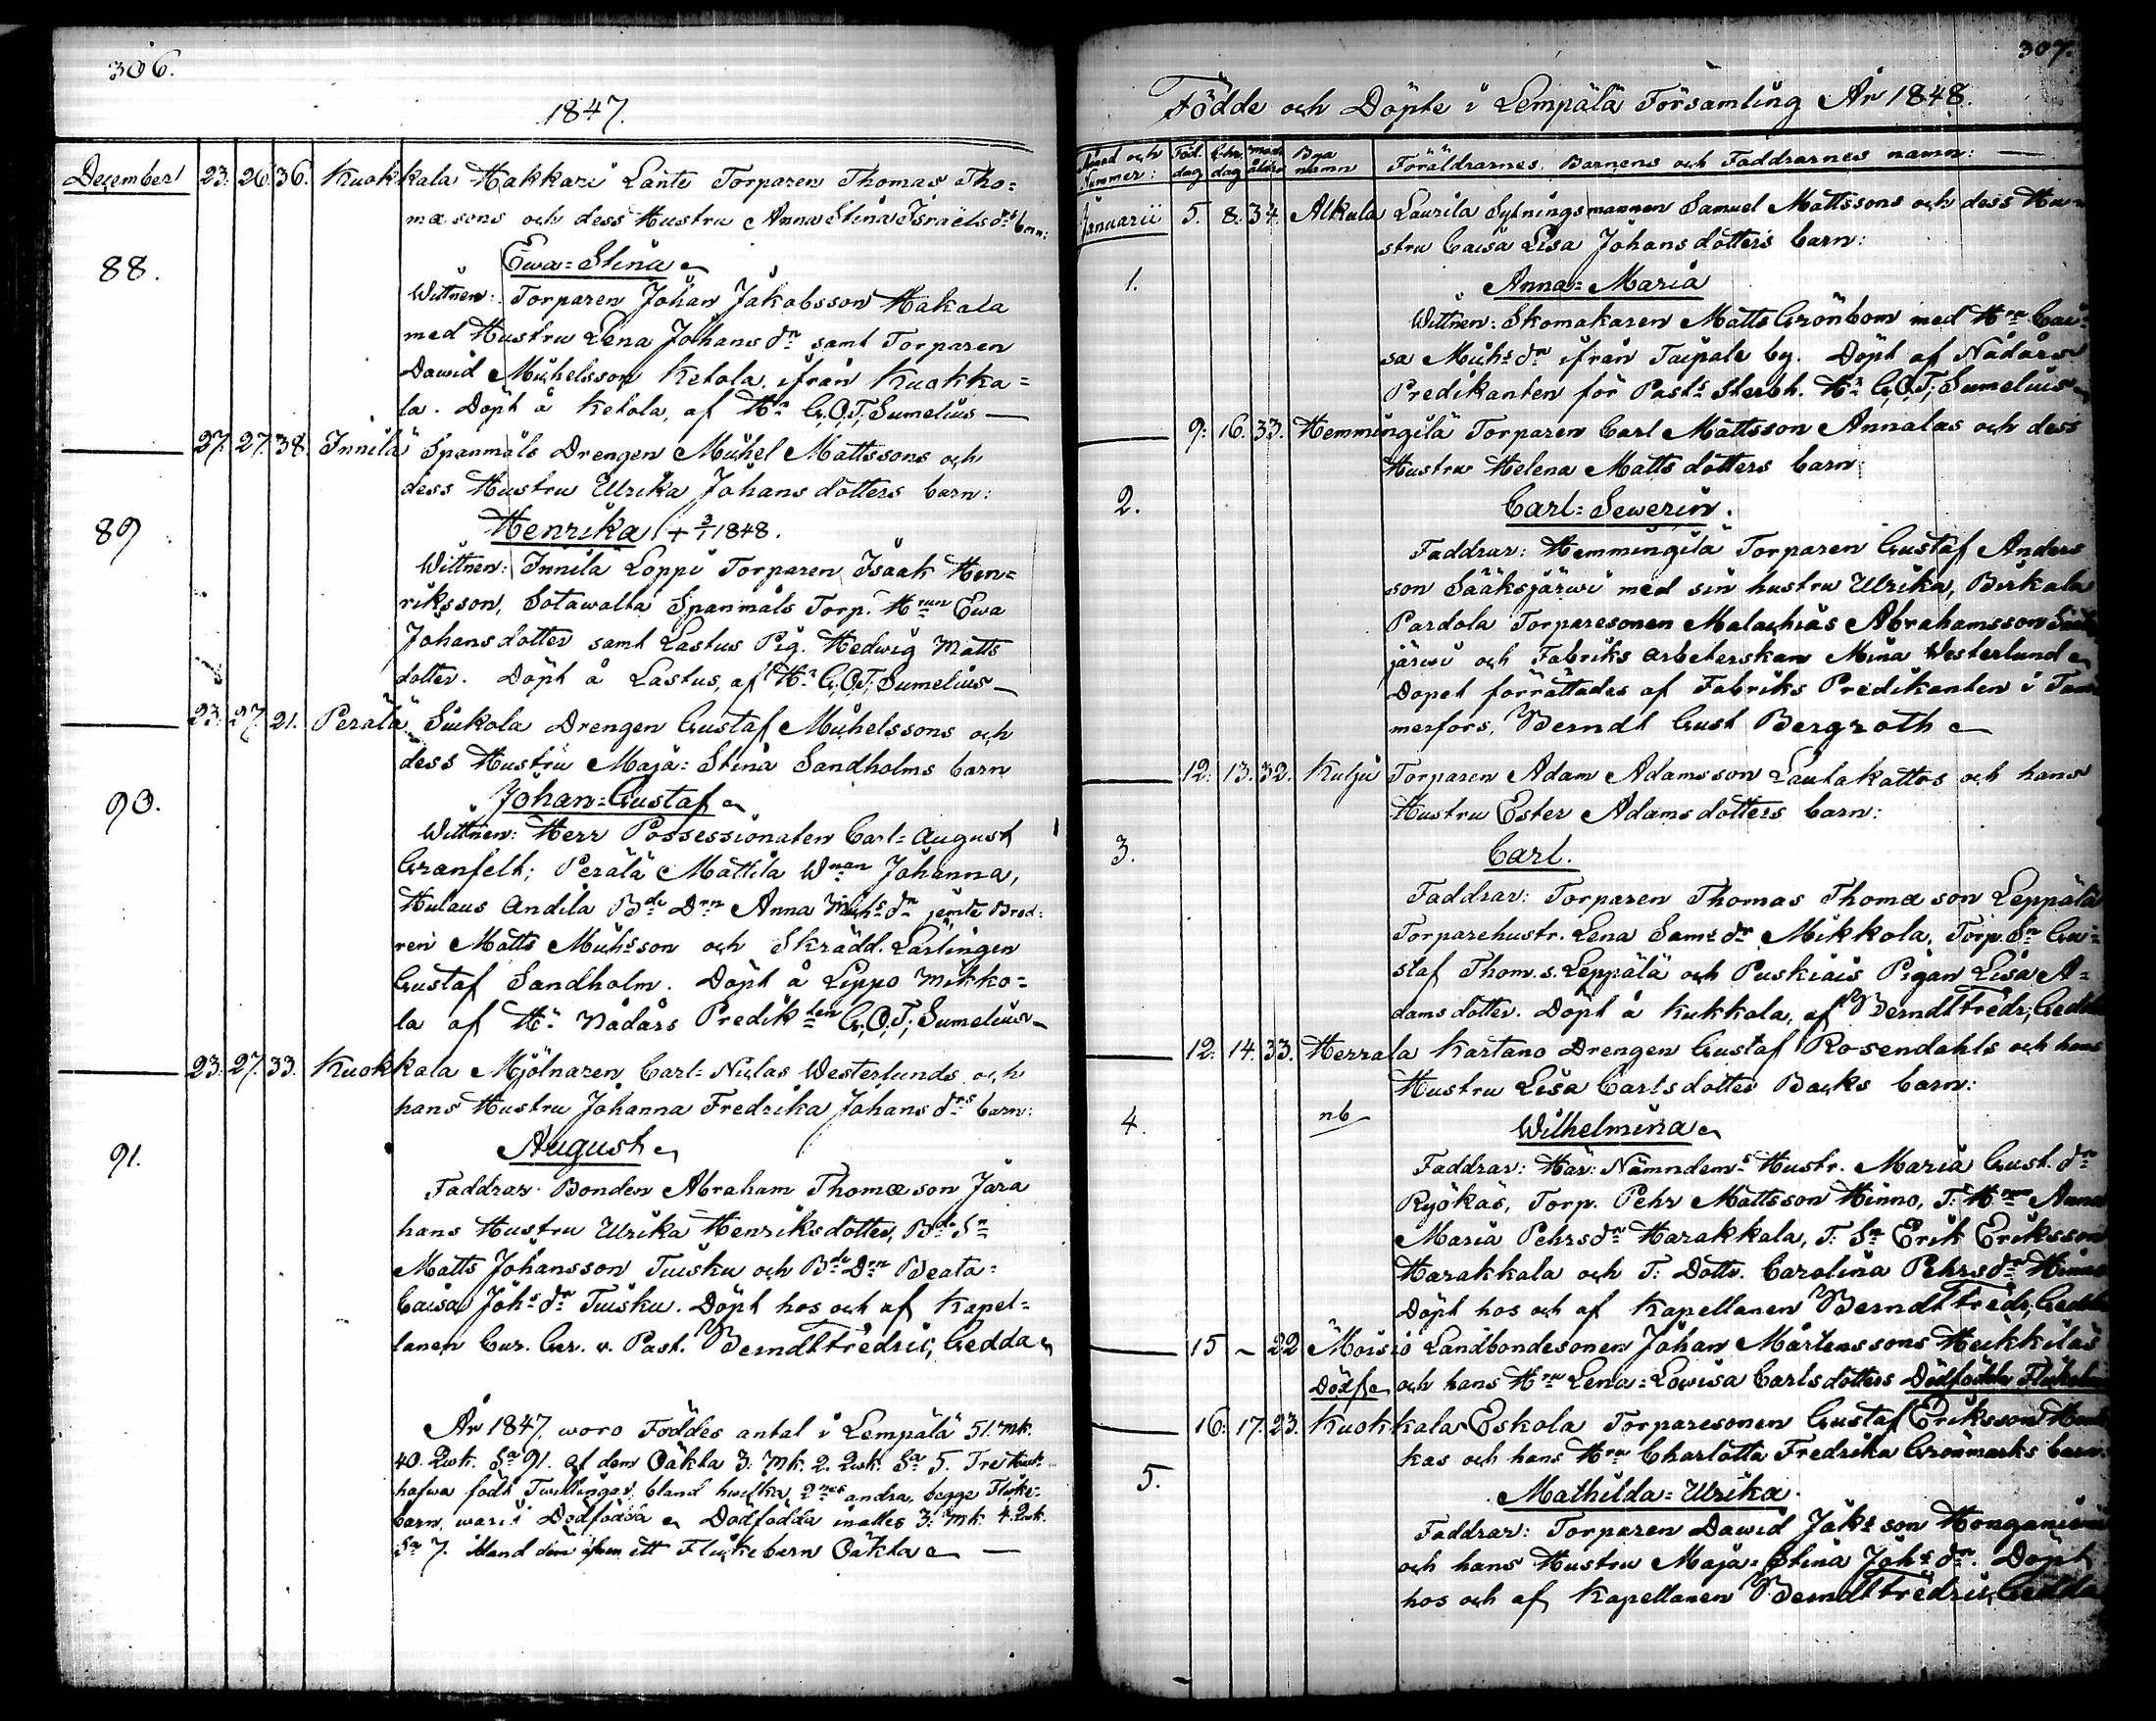 306.
1847.
December 23. 26. 36. Kuokkala Hakkari Lante Torparen Thomas Tho=
mæsons och dess Hustru Anna Stina Israëlsdrs barn:
88.
Ewa=Stina
Wittnen: Torparen Johan Jakobsson Hakala
med Hustru Lena Johansdr samt Torparen
Dawid Michelsson Ketola, ifrån Kuokka=
la. Döpt å Ketola, af Hr G,O,T, Sumelius —
27. 27. 38. Innilä Spanmåls Drengen Michel Mattssons och
dess Hustru Ulrika Johansdotters barn:
89.
Henrika + 3/1 1848.
Wittnen: Innilä Loppi Torparen Isaak Hen=
riksson, Sotawalta Spanmåls Torp. Hrun Ewa
Johansdotter samt Lastus Pig. Hedwig Matts
dotter. Döpt å Lastus, af Hr G,O,T, Sumelius —
23. 27. 21. Perälä Siukola Drengen Gustaf Michelssons och
dess Hustru Maja=Stina Sandholms barn
90.
Johan=Gustaf
Wittnen: Herr Possessionaten Carl=August
Granfelt; Perälä Mattila Wnan Johanna,
Hulaus Andila Bde Drn Anna Michsdr jemte Brod:
ren Matts Michsson och Skrädd. Lärlingen
Gustaf Sandholm. Döpt å Lippo Mikko=
la af Hr Nådårs Predikten G,O,T, Sumelius —
23. 27. 33. Kuokkala Mjölnaren Carl=Niclas Westerlunds och
hans Hustru Johanna Fredrika Johansdrs barn:
91.
August
Faddrar: Bonden Abraham Thomæson Jära
hans Hustru Ulrika Henriksdotter, Bde Sn
Matts Johansson Tuisku och Bde Drn Beata=
Caisa Johsdr Tuisku. Döpt hos och af Kapel=
lanen Cur. Ger. v. Past. Berndt Fredric, Gedda
År 1847 woro Föddes antal i Lempälä 51. Mk.
40. Qwk. Sa 91. af dem Oäkta 3. Mk. 2. Qwk. Sa 5. Tre
hafwa födt Twillingar, bland hwilka 2nes andra, begge Flicke=
barn, warit Dödfödda Dödfödda inalles 3. Mk. 4. Qwk.
Sa 7. ibland dem äfven ett Flickebarn Oäkta —
307.
Födde och Döpte i Lempälä Församling År 1848.
Månad och Nummer: Föd. dag Chr. dag Mod. ålder Bya namn Föräldrarnes, Barnens och Faddrarnes namn: —
Januarii 5. 8. 34. Alkula Laurila Sytningsmannen Samuel Mattssons och dess Hu=
stru Caisa Lisa Johansdotters barn:
1.
Anna=Maria
Wittnen: Skomakaren Matts Grönbom med Hru Cai=
sa Michsdr ifrån Taipale by. Döpt af Nådårs
Predikanten för Pasts Sterbh. Hr G,O,T, Sumelius
9. 16. 33. Hemmingilä Torparen Carl Mattsson Annalas och dess
Hustru Helena Mattsdotters barn
2.
Carl=Sewerin.
Faddrar: Hemmingilä Torparen Gustaf Anders
son Sääksjärwi med sin hustru Ulrika, Birkala
Pardola Torparesonen Malachias Abrahamsson Sääks
järwi och Fabriks arbeterskan Mina Westerlund
Dopet förrättades af Fabriks Predikanten i Tam
merfors, Berndt Gust Bergroth
12. 13. 32. Kulju Torparen Adam Adamsson Lautakattos och hans
Hustru Ester Adamsdotters barn:
3.
Carl.
Faddrar: Torparen Thomas Thomæson Leppälä
Torparehustr. Lena Samsdr Mikkola, Torp. Sn Gu=
staf Thom.s. Leppälä och Puskiais Pigan Lisa A=
damsdotter. Döpt å Kukkola, af Berndt Fredr, Gedda
12. 14. 33. Herrala Kartano Drengen Gustaf Rosendahls och hans
Hustru Lisa Carlsdotter Backs barn:
4. nb
Wilhelmina
Faddrar: Här: Nämndems Hustr. Maria Gust.dr
Ryökäs, Torp. Pehr Mattsson Hinno, T: Hrun Anna
Maria Pehrsdr Harakkala, T: Sn Erik Eriksson
Harakkala och T: Dottr. Carolina Pehrsdr Hinno
Döpt hos och af Kapellanen Berndt Fredr, Gedda
15 ~ 22 Moisio Landbondesonen Johan Mårtenssons Heikkiläs
Dödf. och hans Hru Lena=Lowisa Carlsdotters Dödfödda
16. 17. 23. Kuokkala Eskola Torparesonen Gustaf Eriksson
kas och hans Hru Charlotta Fredrika Grönmarks barn:
5.
Mathilda=Ulrika.
Faddrar: Torparen Dawid Jaksson
och hans Hustru Maja=Stina Johsdr. Döpt
hos och af Kapellanen Berndt Fredric, Gedda